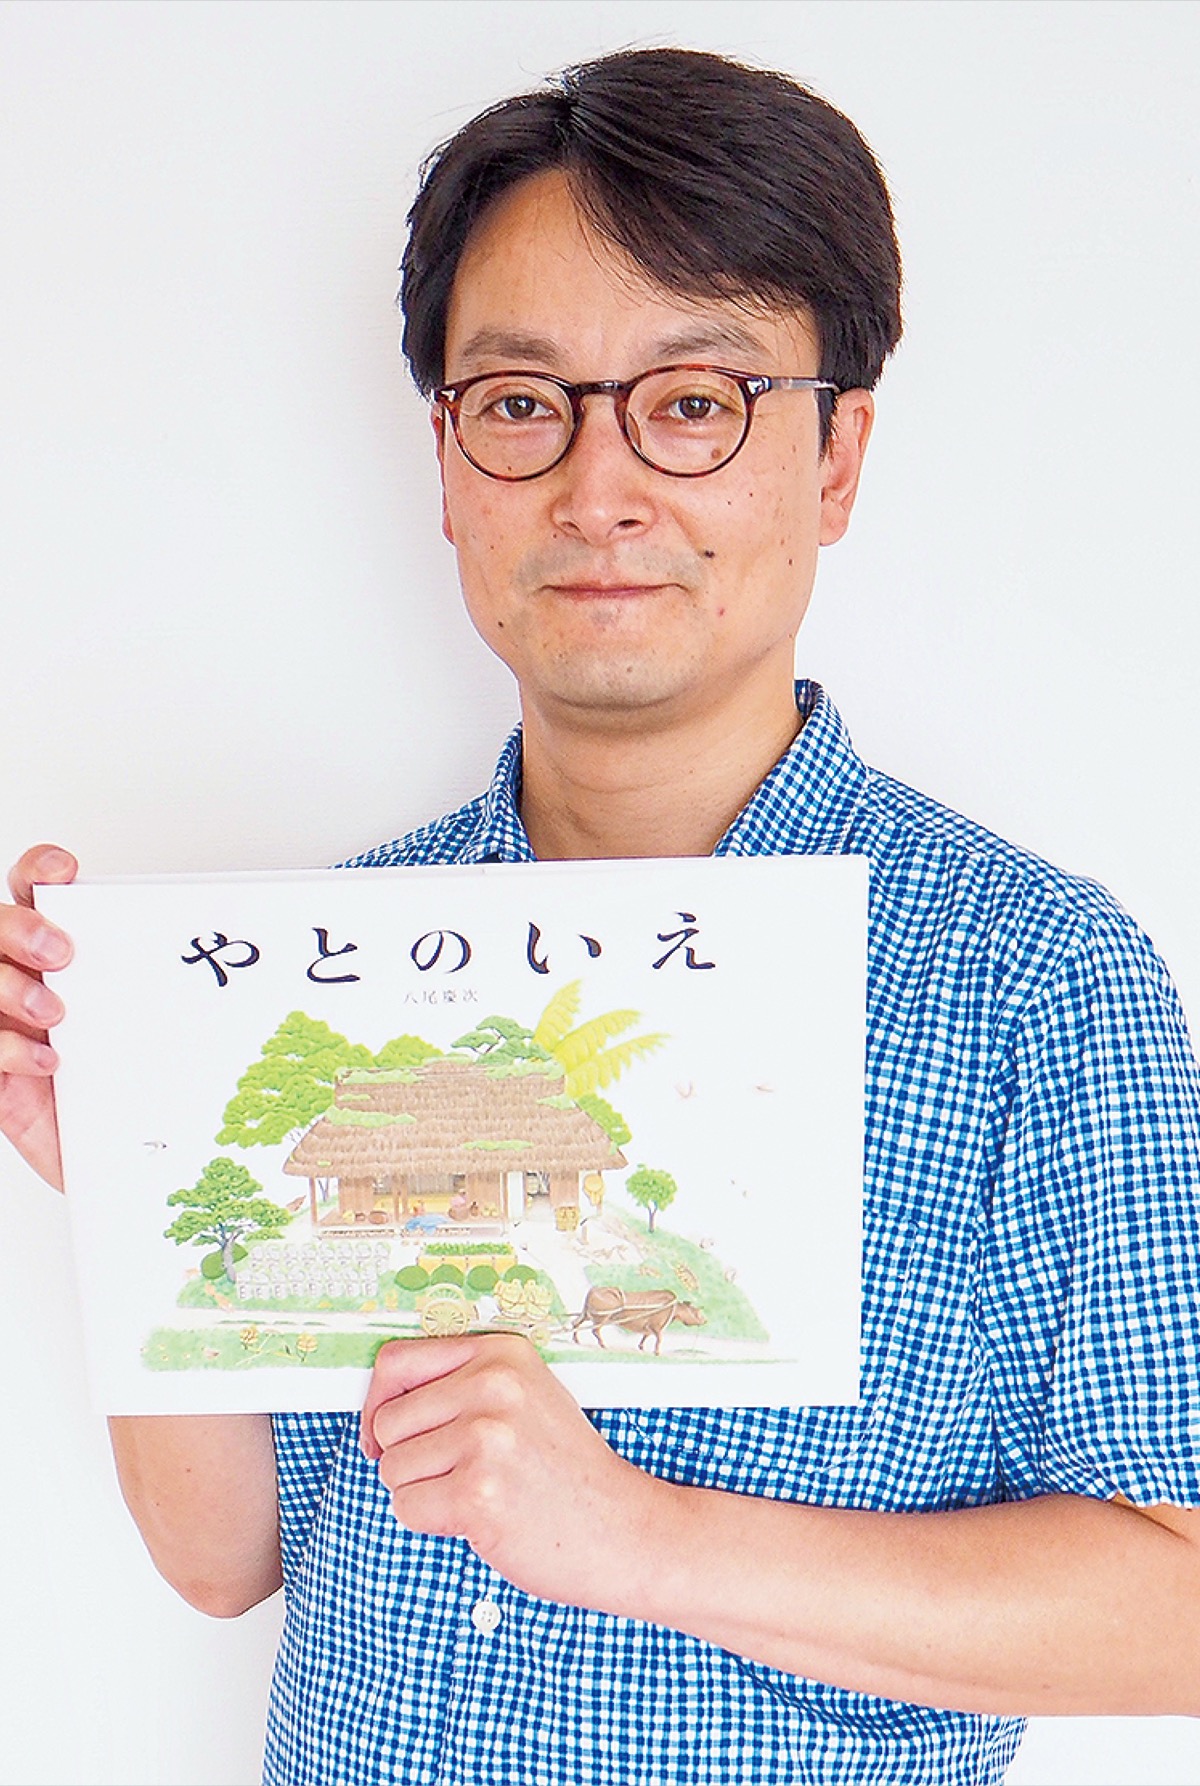 やとのいえ
八尾慶次